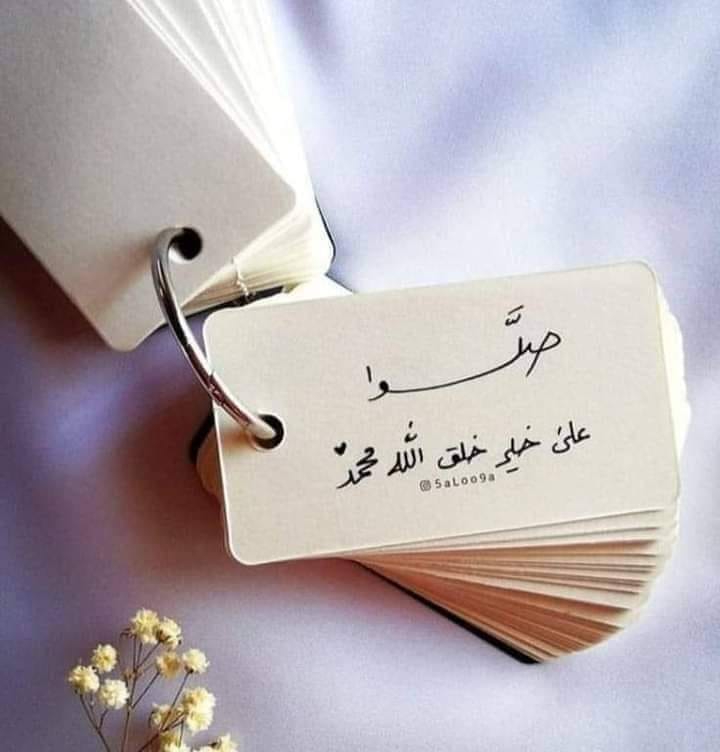 صلَّوا
على خير خلق الله محمد♥
@5aLoo9a